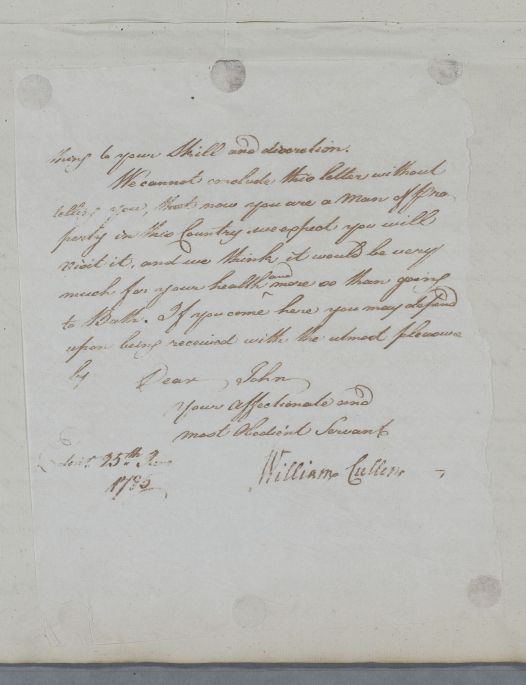 thing to your Skill and discretion.
We cannot conclude this letter without
telling you, that now you are a Man of Pro
perty in this Country we expect you will
visit it, and we think it would be very
much for your health and more so than going
to Bath. If you come here you may depend
upon being received with the utmost pleasure
by Dear John
your affectionate and
most Obedient Servant
25th
William Cullen